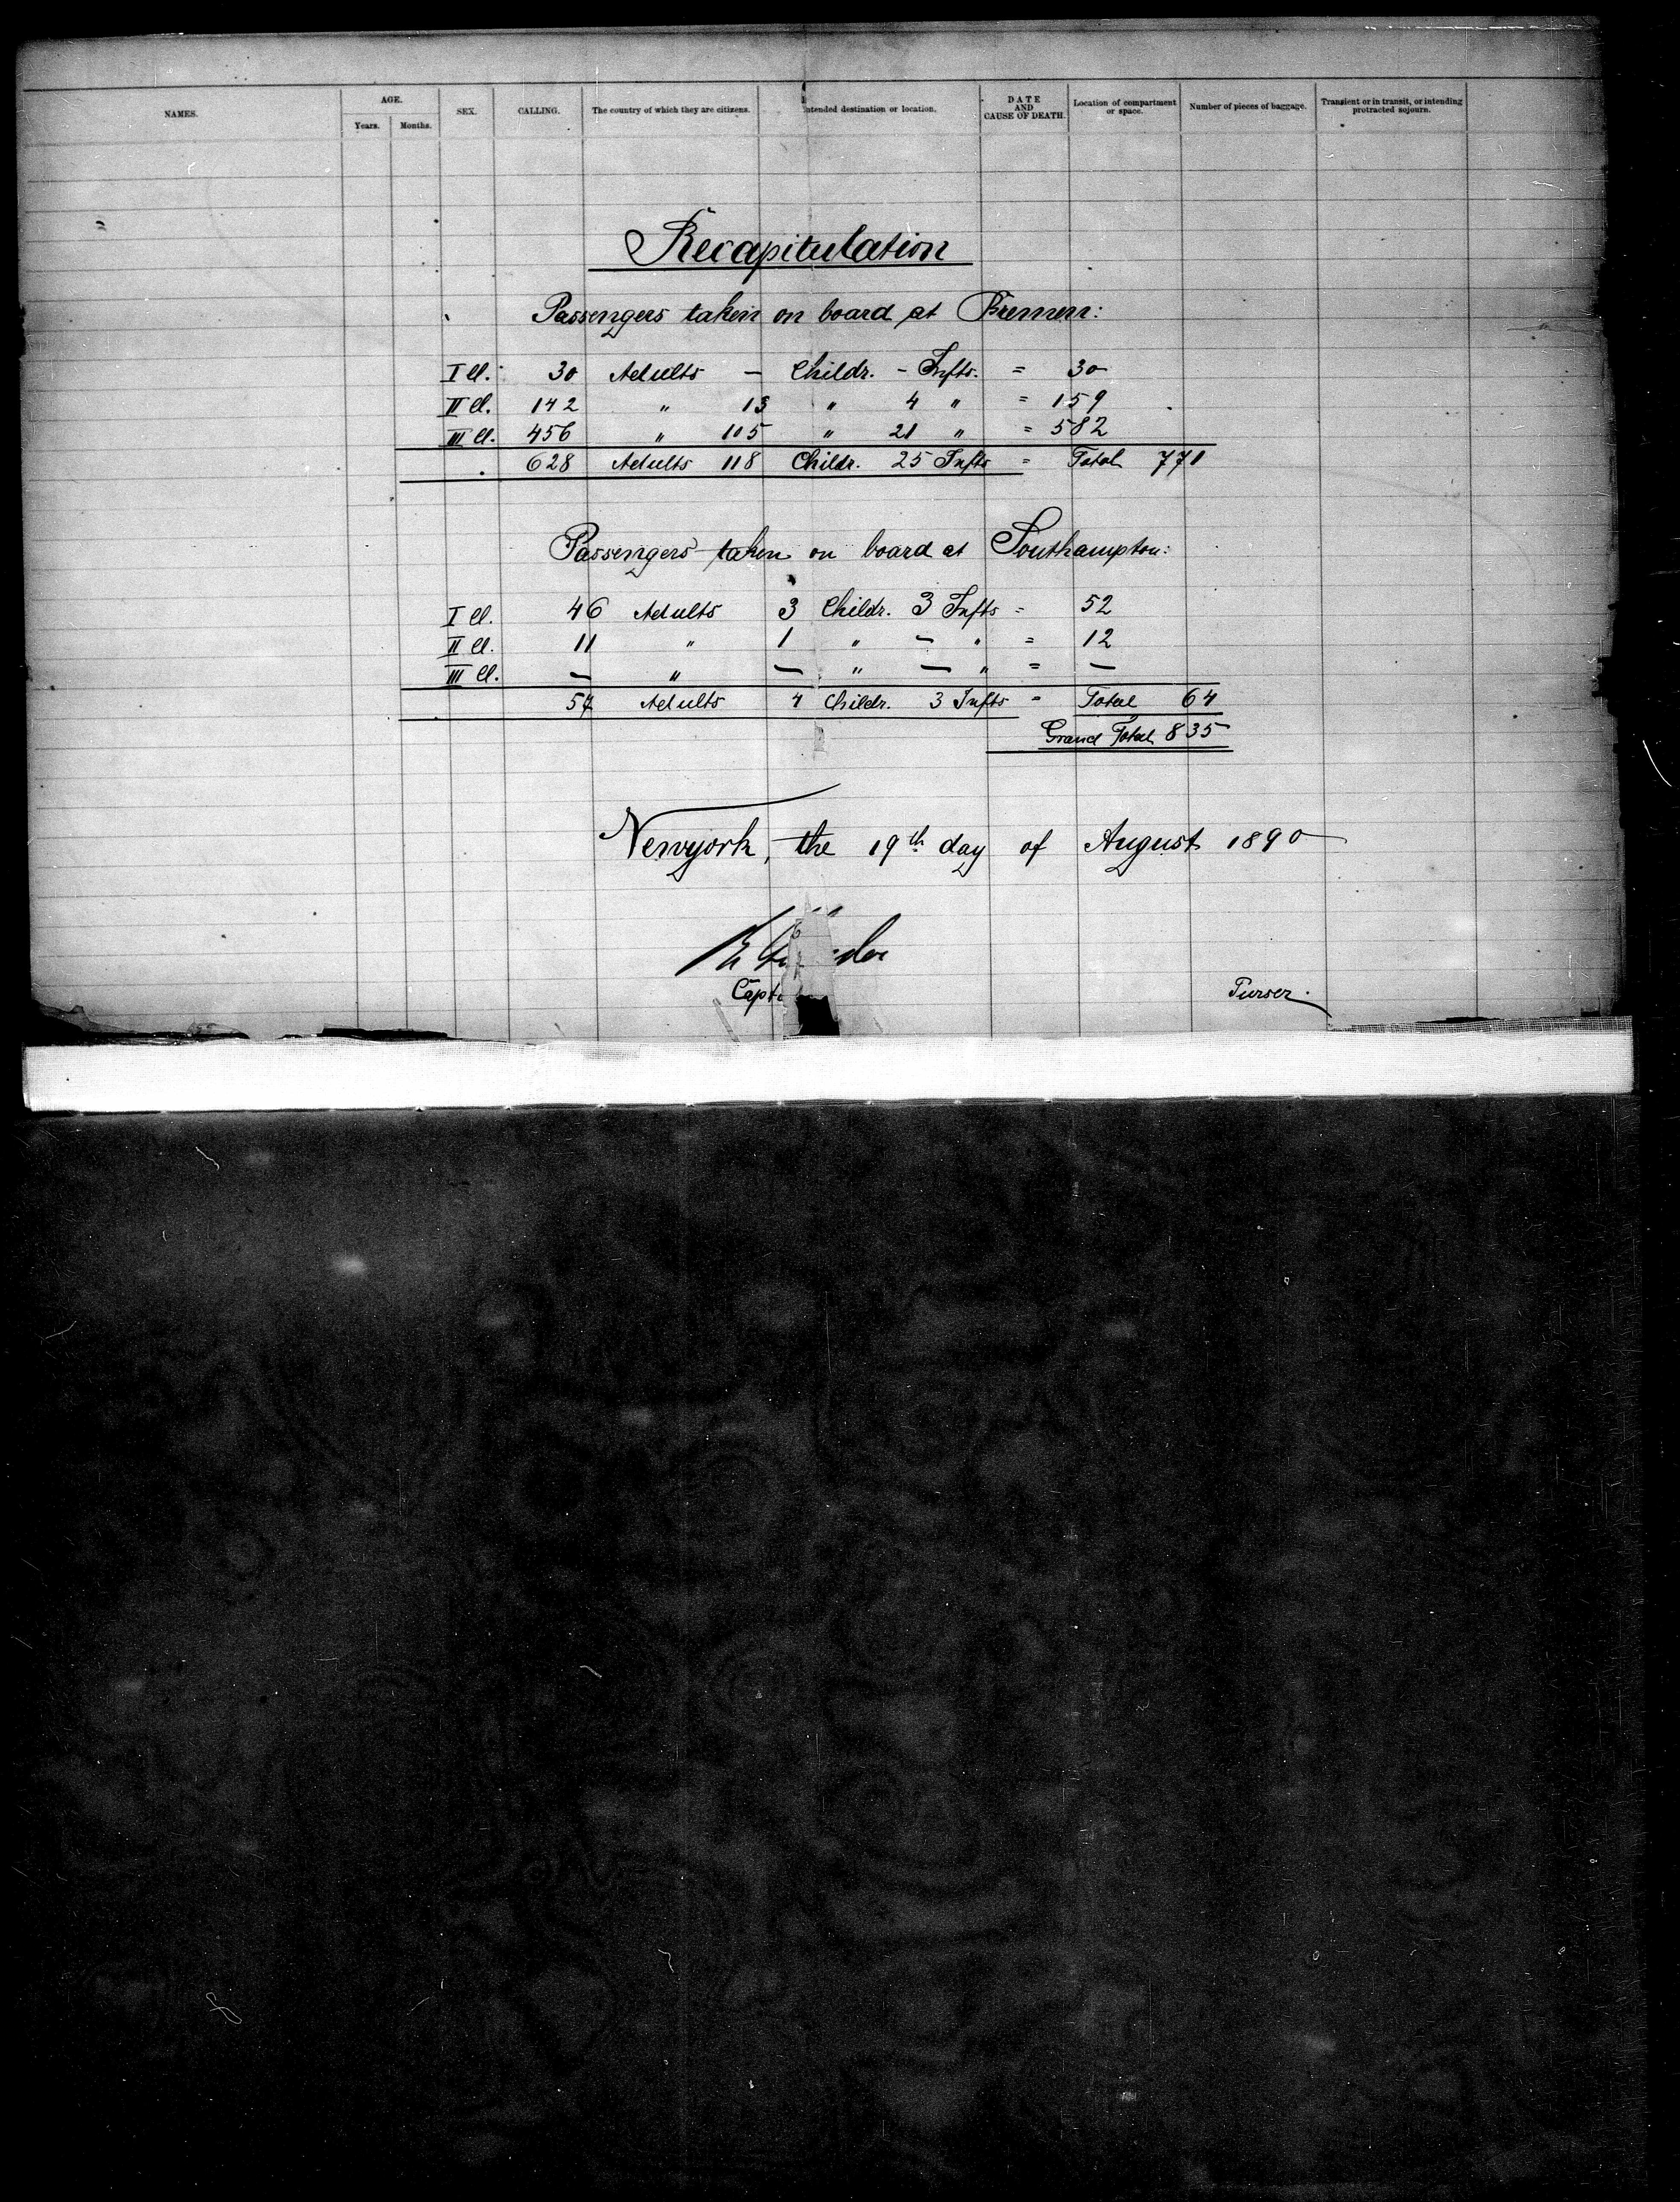 NAMES. AGE. SEX. CALLING. The country of which they are citizens. Intended destination or location. DATE AND CAUSE OF DEATH. Location of compartment or space. Number of pieces of baggage. Transient or in transit, or intending protracted sojourn.
Years. Months.
Recapitulation
Passengers taken on board at Bremen:
I Cl. 30 Adults — Childr. - Infts. = 30
II Cl. 142 " 13 " 4 " = 159
III Cl. 456 " 105 " 21 " = 582
628 Adults 118 Childr. 25 Infts = Total 771
Passengers taken on board at Southampton:
I Cl. 46 Adults 3 Childr. 3 Infts = 52
II Cl. 11 " 1 " — " = 12
III Cl. — " — " — " = —
57 Adults 4 Childr. 3 Infts = Total 64
Grand Total 835
Newyork, the 19th day of August 1890
Purser.